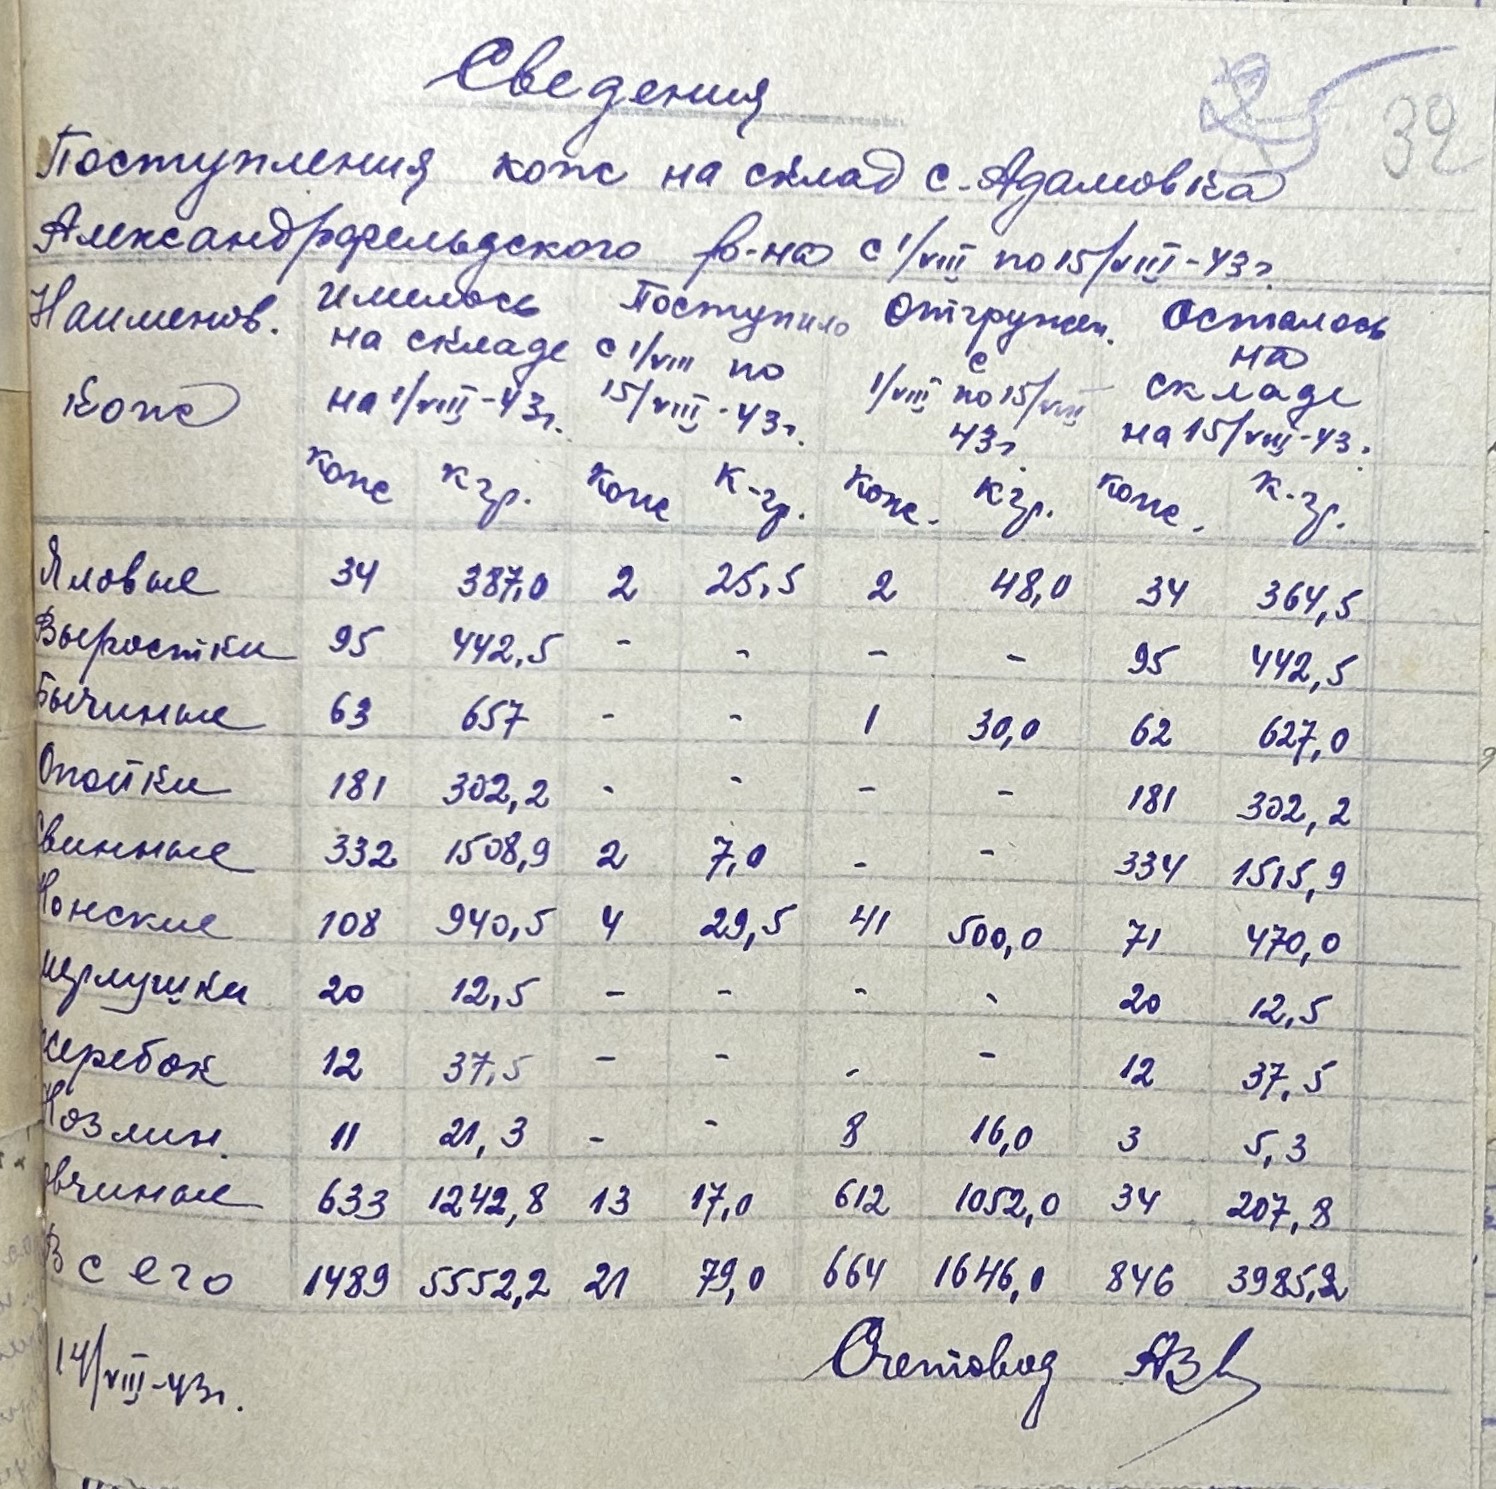 39
Сведения
Поступления кож на склад с. Адамовка
Александрфельдского р-на с 1/VIII по 15/VIII-43г.
Наименов. Имелось Поступило Отгружен. Осталось
на складе с 1/VIII по с на
Кож на 1/VIII-43г. 15/VIII-43г. 1/VIII по 15/VIII складе
43г. на 15/VIII-43.
кож кгр. кож к-гр. кож. кгр. кож. к-гр.
Яловые 34 387,0 2 25,5 2 48,0 34 364,5
Выростки 95 442,5 - - - - 95 442,5
Бычиные 63 657 - - 1 30,0 62 627,0
Опойки 181 302,2 - - - - 181 302,2
Свинные 332 1508,9 2 7,0 - - 334 1515,9
Конские 108 940,5 4 29,5 41 500,0 71 470,0
мерлушки 20 12,5 - - - - 20 12,5
жеребок 12 37,5 - - - - 12 37,5
Козлин. 11 21,3 - - 8 16,0 3 5,3
овчиные 633 1242,8 13 17,0 612 1052,0 34 207,8
Всего 1489 5552,2 21 79,0 664 1646,0 846 3985,2
14/VIII-43г. Счетовод